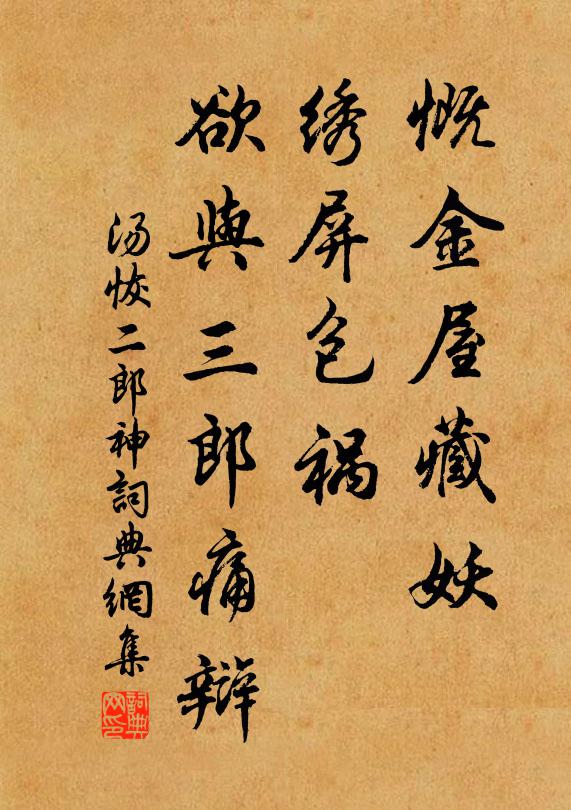 慨金屋藏妖
绣屏包祸
欲與三郎痛辩
汤恢二郎神詞典網集
詞典网印